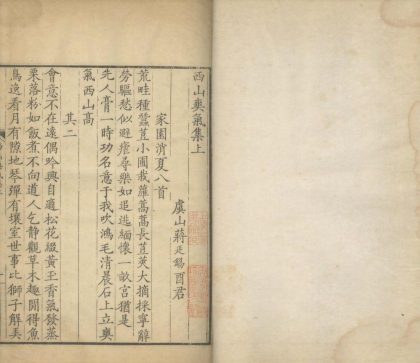 西山爽氣集上
虞山蔣廷錫酉君
家園消夏八首
荒畦種蠶荳小圃栽蘿蔔長荳莢大摘採寧辭
勞驅愁似避瘧尋樂如追逃緬懷一畝宮猶是
先人膏一時功名意于我吹鴻毛清晨石上立爽
氣西山高
其二
會意不在遠偶吟興自適松花綴黃玊香氣發蒸
栗落粉如飯煮不向道人乞靜觀草木趣閒得魚
鳥逸看月有隙地琴彈有壤室世事比獅子解弄